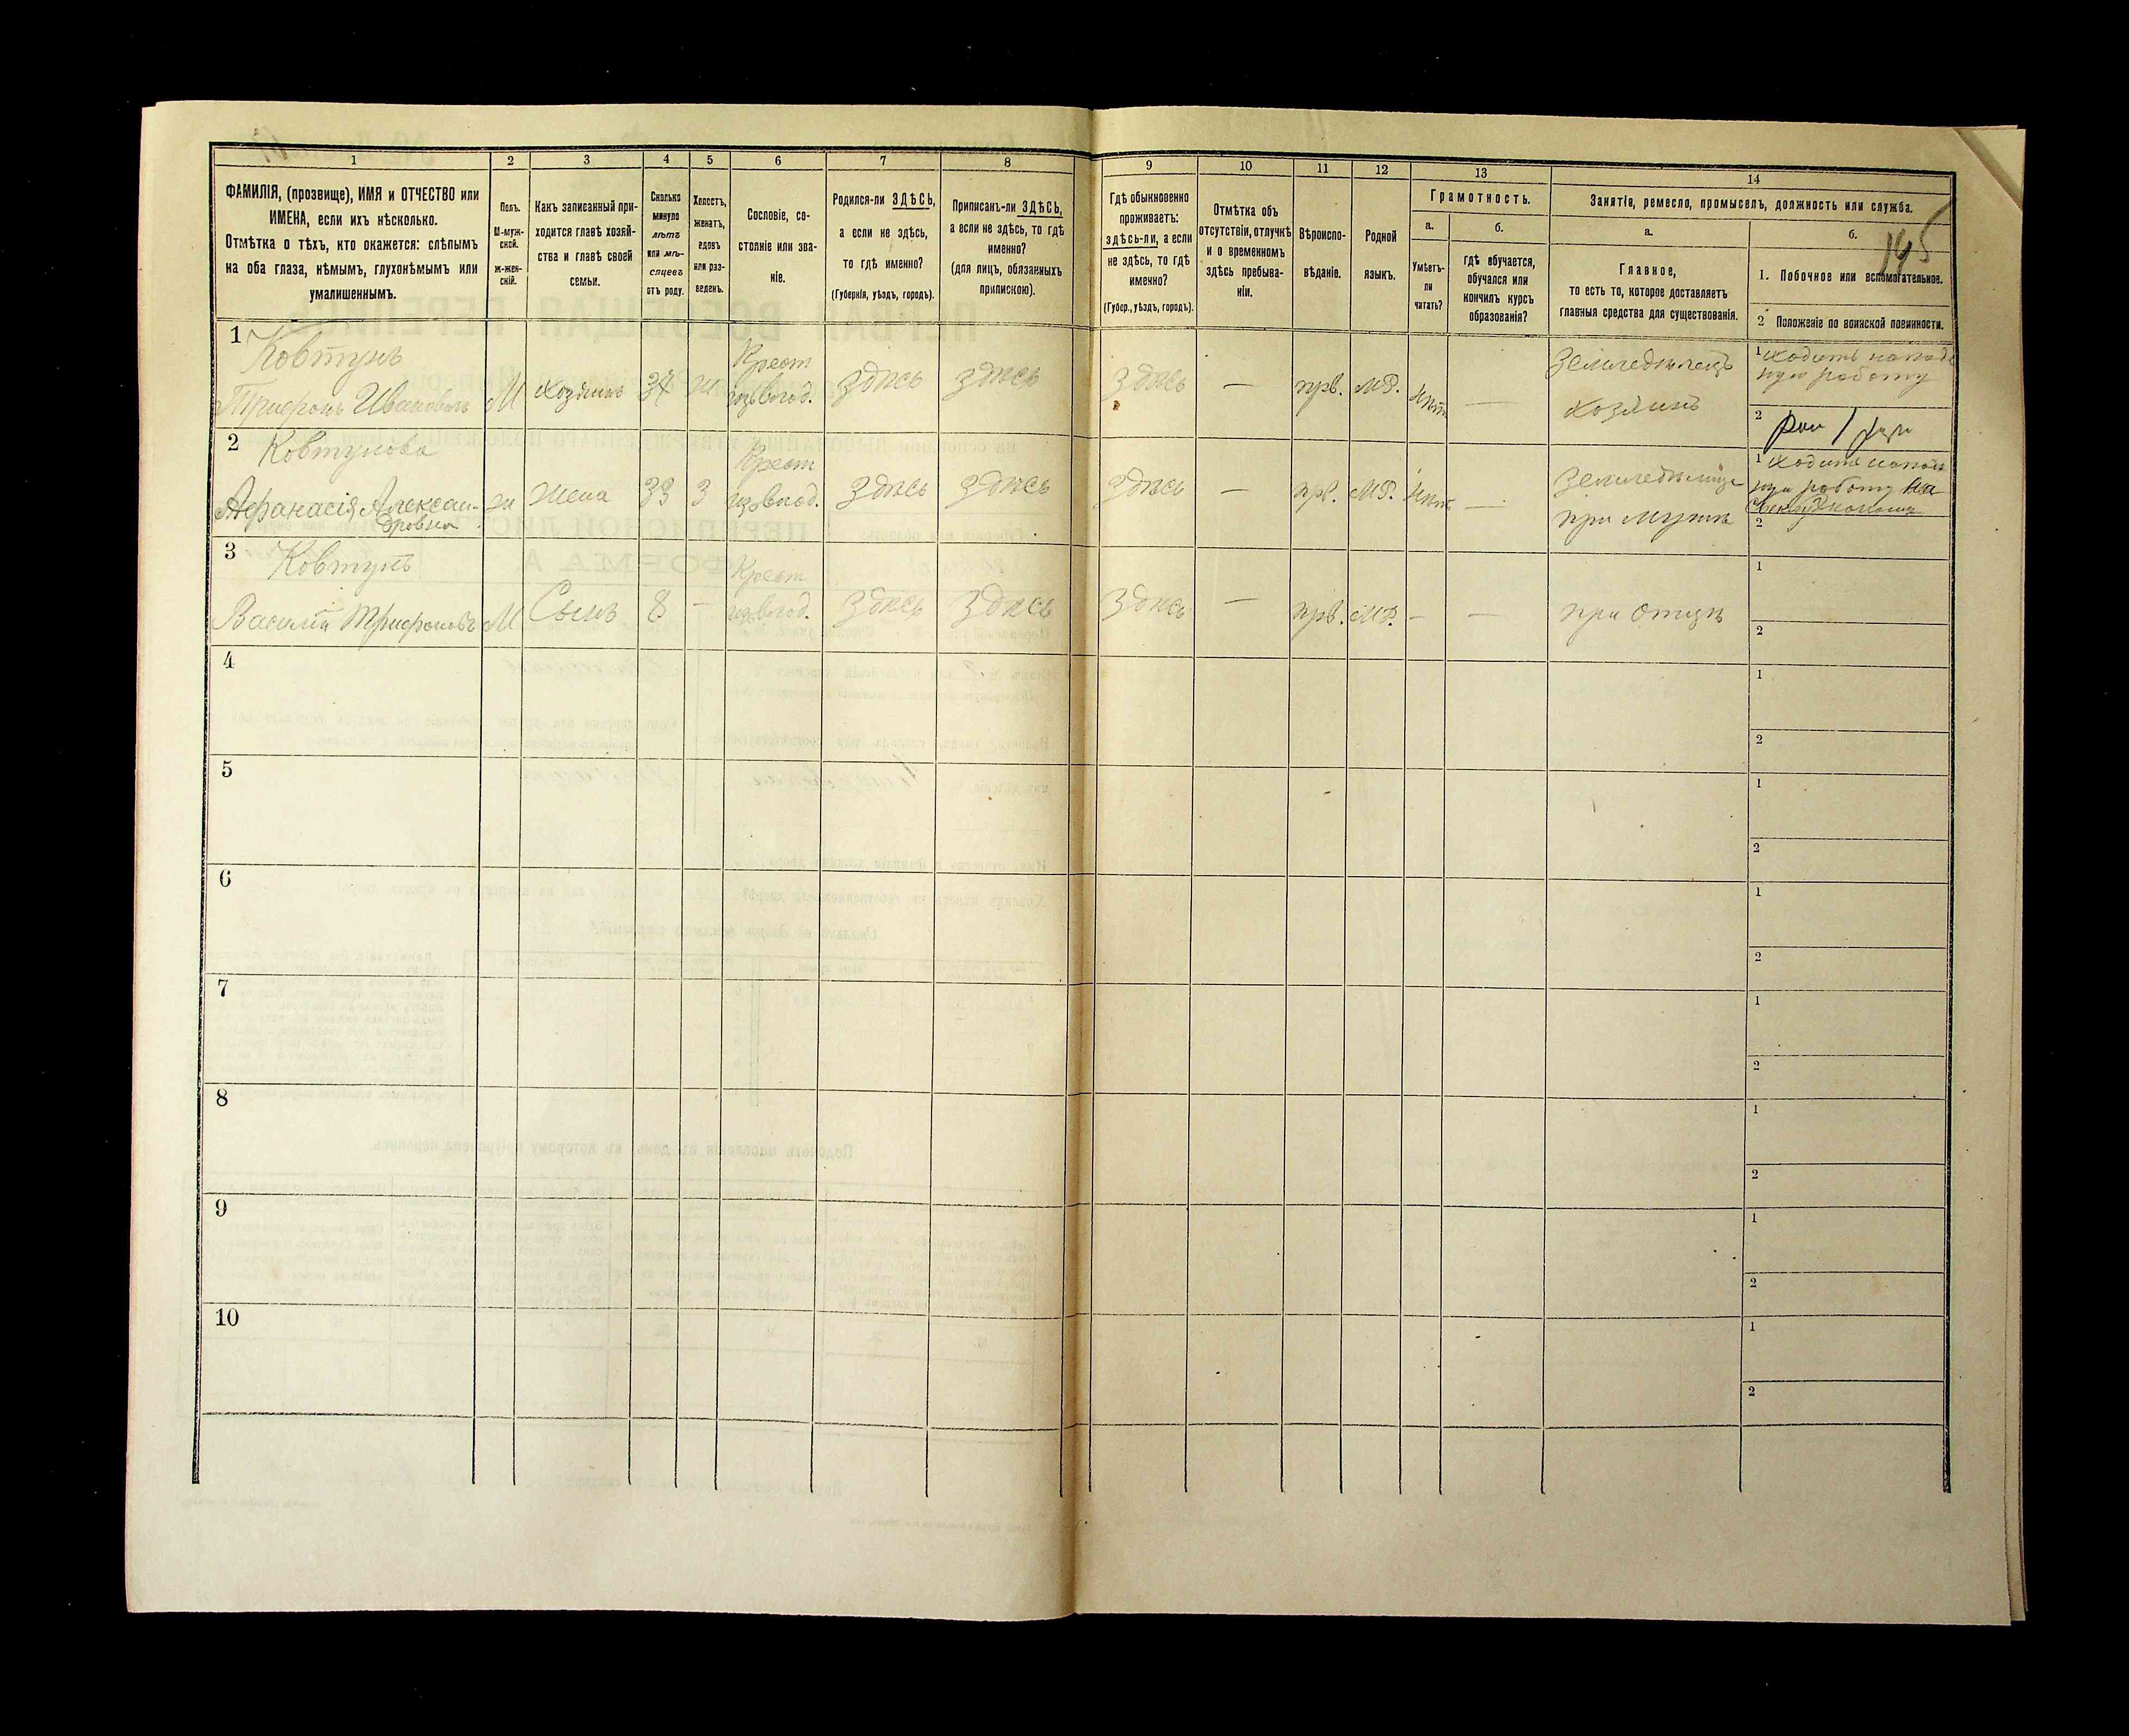 1
2
3
4
5
6
7
8
9
10
11
12
13
14
ФАМИЛІЯ, (прозвище), ИМЯ и ОТЧЕСТВО или
ИМЕНА, если ихъ нѣсколько.
Отмѣтка о тѣхъ, кто окажется: слѣпымъ
на оба глаза, нѣмымъ, глухонѣмымъ или
умалишеннымъ.
Полъ.
М-муж-
ской.
ж-жен-
скій.
Какъ записанный при-
ходится главѣ хозяй-
ства и главѣ своей
семьи.
Сколько
минуло
лѣтъ
или мѣ-
сяцевъ
отъ роду.
Холостъ,
женатъ,
вдовъ
или раз-
веденъ.
Сословіе, со-
стояніе или зва-
ніе.
Родился-ли ЗДѢСЬ,
а если не здѣсь,
то гдѣ именно?
(Губернія, уѣздъ, городъ).
Приписанъ-ли ЗДѢСЬ,
а если не здѣсь, то гдѣ
именно?
(для лицъ, обязанныхъ
припискою).
Гдѣ обыкновенно
проживаетъ:
здѣсь-ли, а если
не здѣсь, то гдѣ
именно?
(Губер., уѣздъ, городъ).
Отмѣтка объ
отсутствіи, отлучкѣ
и о временномъ
здѣсь пребыва-
ніи.
Вѣроиспо-
вѣданіе.
Родной
языкъ.
Грамотность.
а.
Умѣетъ-
ли
читать?
б.
гдѣ обучается,
обучался или
кончилъ курсъ
образованія?
Занятія, ремесло, промыселъ, должность или служба.
а.
Главное,
то есть то, которое доставляетъ
главныя средства для существованія.
б.
1. Побочное или вспомогательное.
2 Положеніе по воинской повинности.
1
Ковтунъ
Трифонъ Ивановъ М хозяинъ 34 ж Крест
изъ влад. здѣсь здѣсь здѣсь — прв. МР. нѣтъ — Земледѣлецъ
хозяинъ
1 ходитъ на
ную работу
2
2
Ковтунова
Афанасія Алексан-
дровна ж жена 33 з Крест
изъ влад. здѣсь здѣсь здѣсь — прв. МР. нѣтъ — Земледѣлица
при мужѣ
1 ходитъ на
ную работу на
2
3
Ковтунъ
Василій Трифоновъ М Сынъ 8 - Крест
изъ влад. здѣсь здѣсь здѣсь — прв. МР. - — при отцѣ
1
2
4
1
2
5
1
2
6
1
2
7
1
2
8
1
2
9
1
2
10
1
2